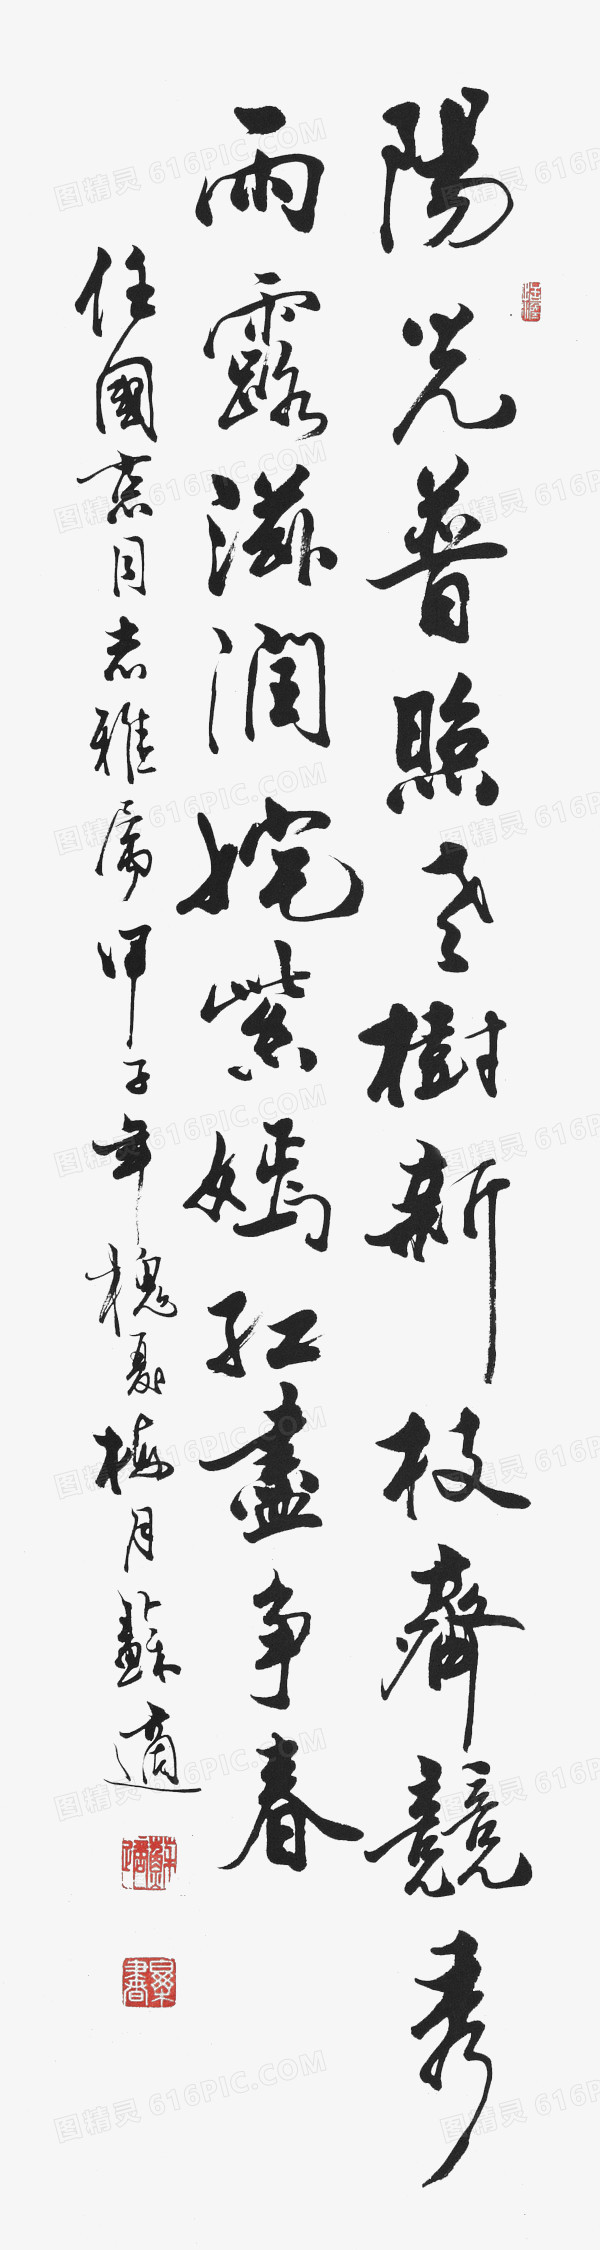 陽光普照老樹新枝齊競秀
雨露滋潤姹紫嫣紅盡争春
任國志同志雅属甲子年槐夏梅月蘇適
图精灵 616PIC.COM